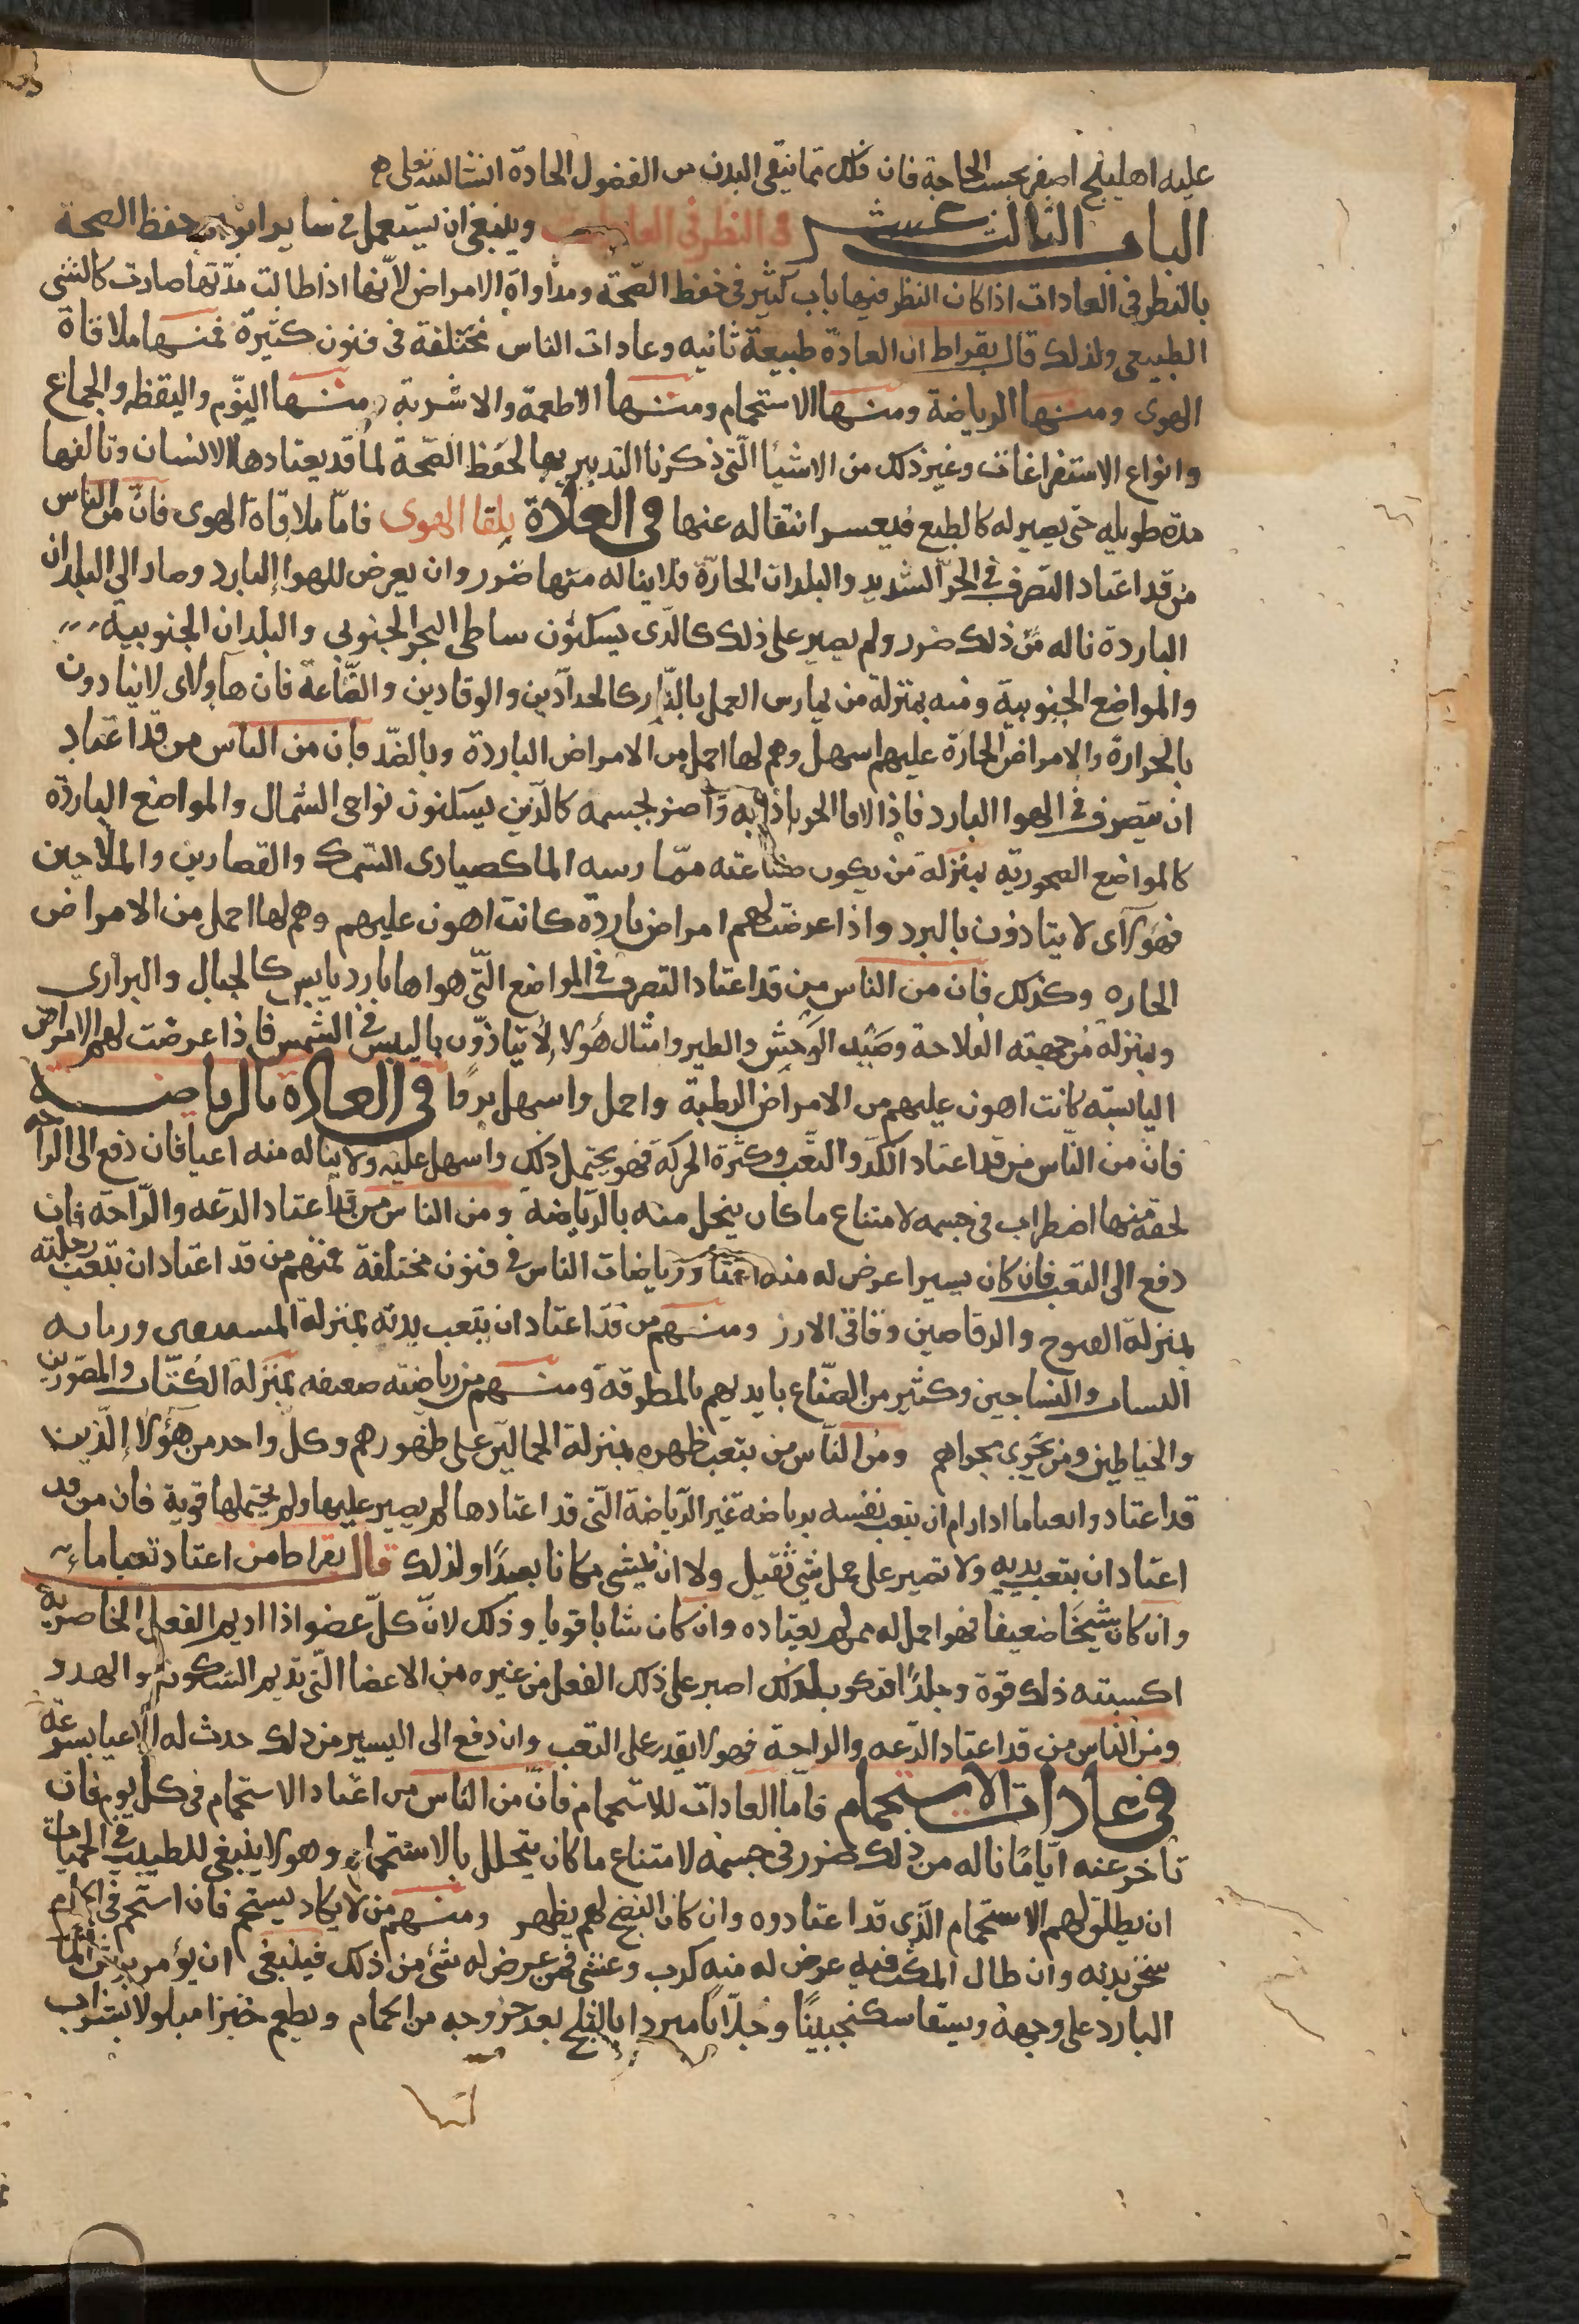 عليه اهليلج اصفر بحسب الحاجة فان ذلك مما ينقى البدن من الفضول الحادة انشا الله تعالى
الباب الثالث عشر فى النظر فى العادات وينبغى ان يستعمل فى ساير ابواب حفظ الصحة
بالنظر فى العادات اذا كان النظر فيها باب كبير فى حفظ الصحة ومداواة الامراض لانها اذا طالت مدتها صارت كالشى
الطبيعى ولذلك قال بقراط ان العادة طبيعة ثانيه وعادات الناس مختلفة فى فنون كثيرة فمنها ملاقاة
الهوى ومنها الرياضة ومنها الاستحمام ومنها الاطعمة والاشربة ومنها النوم واليقظه والجماع
وانواع الاستفراغات وغير ذلك من الاشيا التى ذكرنا التدبير بها لحفظ الصحة لما قد يعتادها الانسان وتالفها
مدة طويله حتى يصير له كالطبع فيعسر انتقاله عنها فى العادة بلقا الهوى فاما ملاقاة الهوى فان من الناس
من قد اعتاد التصرف فى الحر الشديد والبلدان الحارة فلا يناله منها ضرر وان يعرض للهوا البارد وصار الى البلدان
الباردة ناله من ذلك ضرر ولم يصبر على ذلك كالذى يسكنون ساطى البحر الجنوبى والبلدان الجنوبية
والمواضع الجنوبية ومنه بمنزلة من يمارس العمل بالنار كالحدادين والوقادين والصاغة فان هاولاى لا يتادون
بالحرارة والامراض الحارة عليهم اسهل وهم لها احمل من الامراض الباردة وبالضد فان من الناس من قد اعتاد
ان يتصرف فى الهوا البارد فاذا لاقا الحر اذا به واضر بجسمه كالذين يسكنون نواحى الشمال والمواضع الباردة
كالمواضع الصحورية بمنزلة من يكون صناعته مما رسه الما كصيادى السمك والقصارين والملاحين
فهولاى لا يتادون بالبرد واذا عرضت لهم امراض باردة كانت اهون عليهم وهم لها احمل من الامراض
الحاره وكذلك فان من الناس من قد اعتاد التصرف فى المواضع التى هواها بارد يابس كالجبال والبرارى
وبمنزلة من جهته الفلاحة وصيد الوحش والطير وامثال هولا لا يتاذون باليبس فى الشمس فاذا عرضت لهم الامراض
اليابسه كانت اهون عليهم من الامراض الرطبة واحمل واسهل بروا فى العادة بالرياضة
فان من الناس من قد اعتاد الكد والتعب وكثرة الحركة فهو يحتمل ذلك واسهل عليه ولا يناله منه اعيا فان دفع الى الراحه
لحقه منها اضطراب فى جسمه لامتناع ما كان ينحل منه بالرياضة ومن الناس من قد اعتاد الدعه والراحة فان
دفع الى التعب فان كان يسيرا عرض له منه اعيا ورياضات الناس فى فنون مختلفة فمنهم من قد اعتاد ان يتعب رجليه
بمنزلة الفيوج والرقاصين ودقاقى الارز ومنهم من قد اعتاد ان يتعب يديه بمنزلة ورماه
النساب والنساجين وكثير من الصناع بايديهم بالمطرقة ومنهم من رياضته ضعيفه بمنزلة الكتاب والمصورين
والخياطين ومن يجرى مجراهم ومن الناس من يتعب ظهره بمنزلة الحمالين على ظهورهم وكل واحد من هولا الذين
قد اعتادوا تعبا ما اذا رام ان يتعب نفسه برياضه غير الرياضة التى قد اعتادها لم يصبر عليها ولم يحتملها قوية فان من قد
اعتاد ان يتعب يديه ولا تصبر على حمل شى ثقيل ولا ان يمشى مكانا بعيدا ولذلك قال بقراط من اعتاد تعبا ما
وان كان شيخا ضعيفا فهو احمل له ممن لم يعتاده وان كان شابا قويا وذلك لان كل عضو اذا اديم الفعل الخاص به
اكسبته ذلك قوة وجلدا فتكون لذلك اصبر على ذلك الفعل من غيره من الاعضا التى تديم السكون والهدو
ومن الناس من قد اعتاد الدعه والراحة فهو لا يقدر على التعب وان دفع الى اليسير من ذلك حدث له الاعيا بسرعة
فى عادات الاستحمام فاما العادات للاستحمام فان من الناس من اعتاد الاستحمام فى كل يوم فان
تاخر عنه اياما ناله من ذلك ضرر فى جسمه لامتناع ما كان يتحلل بالاستحمام وهو لا ينبغى للطبيب فى الحميات
ان يطلق لهم الاستحمام الذى قد اعتادوه وان كان النضج لم يظهر ومنهم من لا يكاد يستحم فان استحم فى الحمام
سخن بدنه وان طال المكث فيه عرض له منه كرب وغشى فمن عرض له شى من ذلك فينبغى ان يؤمر برش الما
البارد على وجهه ويسقا سكنجبينا وجلابا مبردا بالثلج بعد خروجه من الحمام ويطعم خبزا مبلولا بشراب